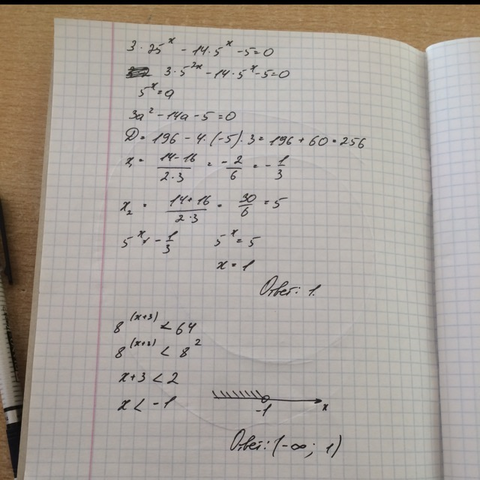 3 · 25^x - 14 · 5^x - 5 = 0
3 · 5^2x - 14 · 5^x - 5 = 0
5^x = a
3a² - 14a - 5 = 0
D = 196 - 4 · (-5) · 3 = 196 + 60 = 256
x₁ = (14 - 16)/(2 · 3) = -2/6 = -1/3
x₂ = (14 + 16)/(2 · 3) = 30/6 = 5
5^x ≠ -1/3 5^x = 5
x = 1
Ответ: 1.
8^(x+3) < 64
8^(x+3) < 8²
x + 3 < 2
x < -1
-1 x
Ответ: (-∞; 1)